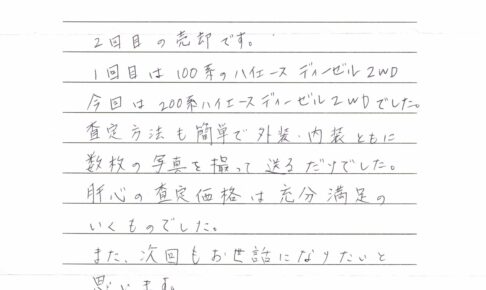 2回目の売却です。
1回目は100系のハイエースディーゼル2WD
今回は200系ハイエースディーゼル2WDでした。
査定方法も簡単で外装・内装ともに
数枚の写真を撮って送るだけでした。
肝心の査定価格は充分満足の
いくものでした。
また、次回もお世話になりたいと
思います。